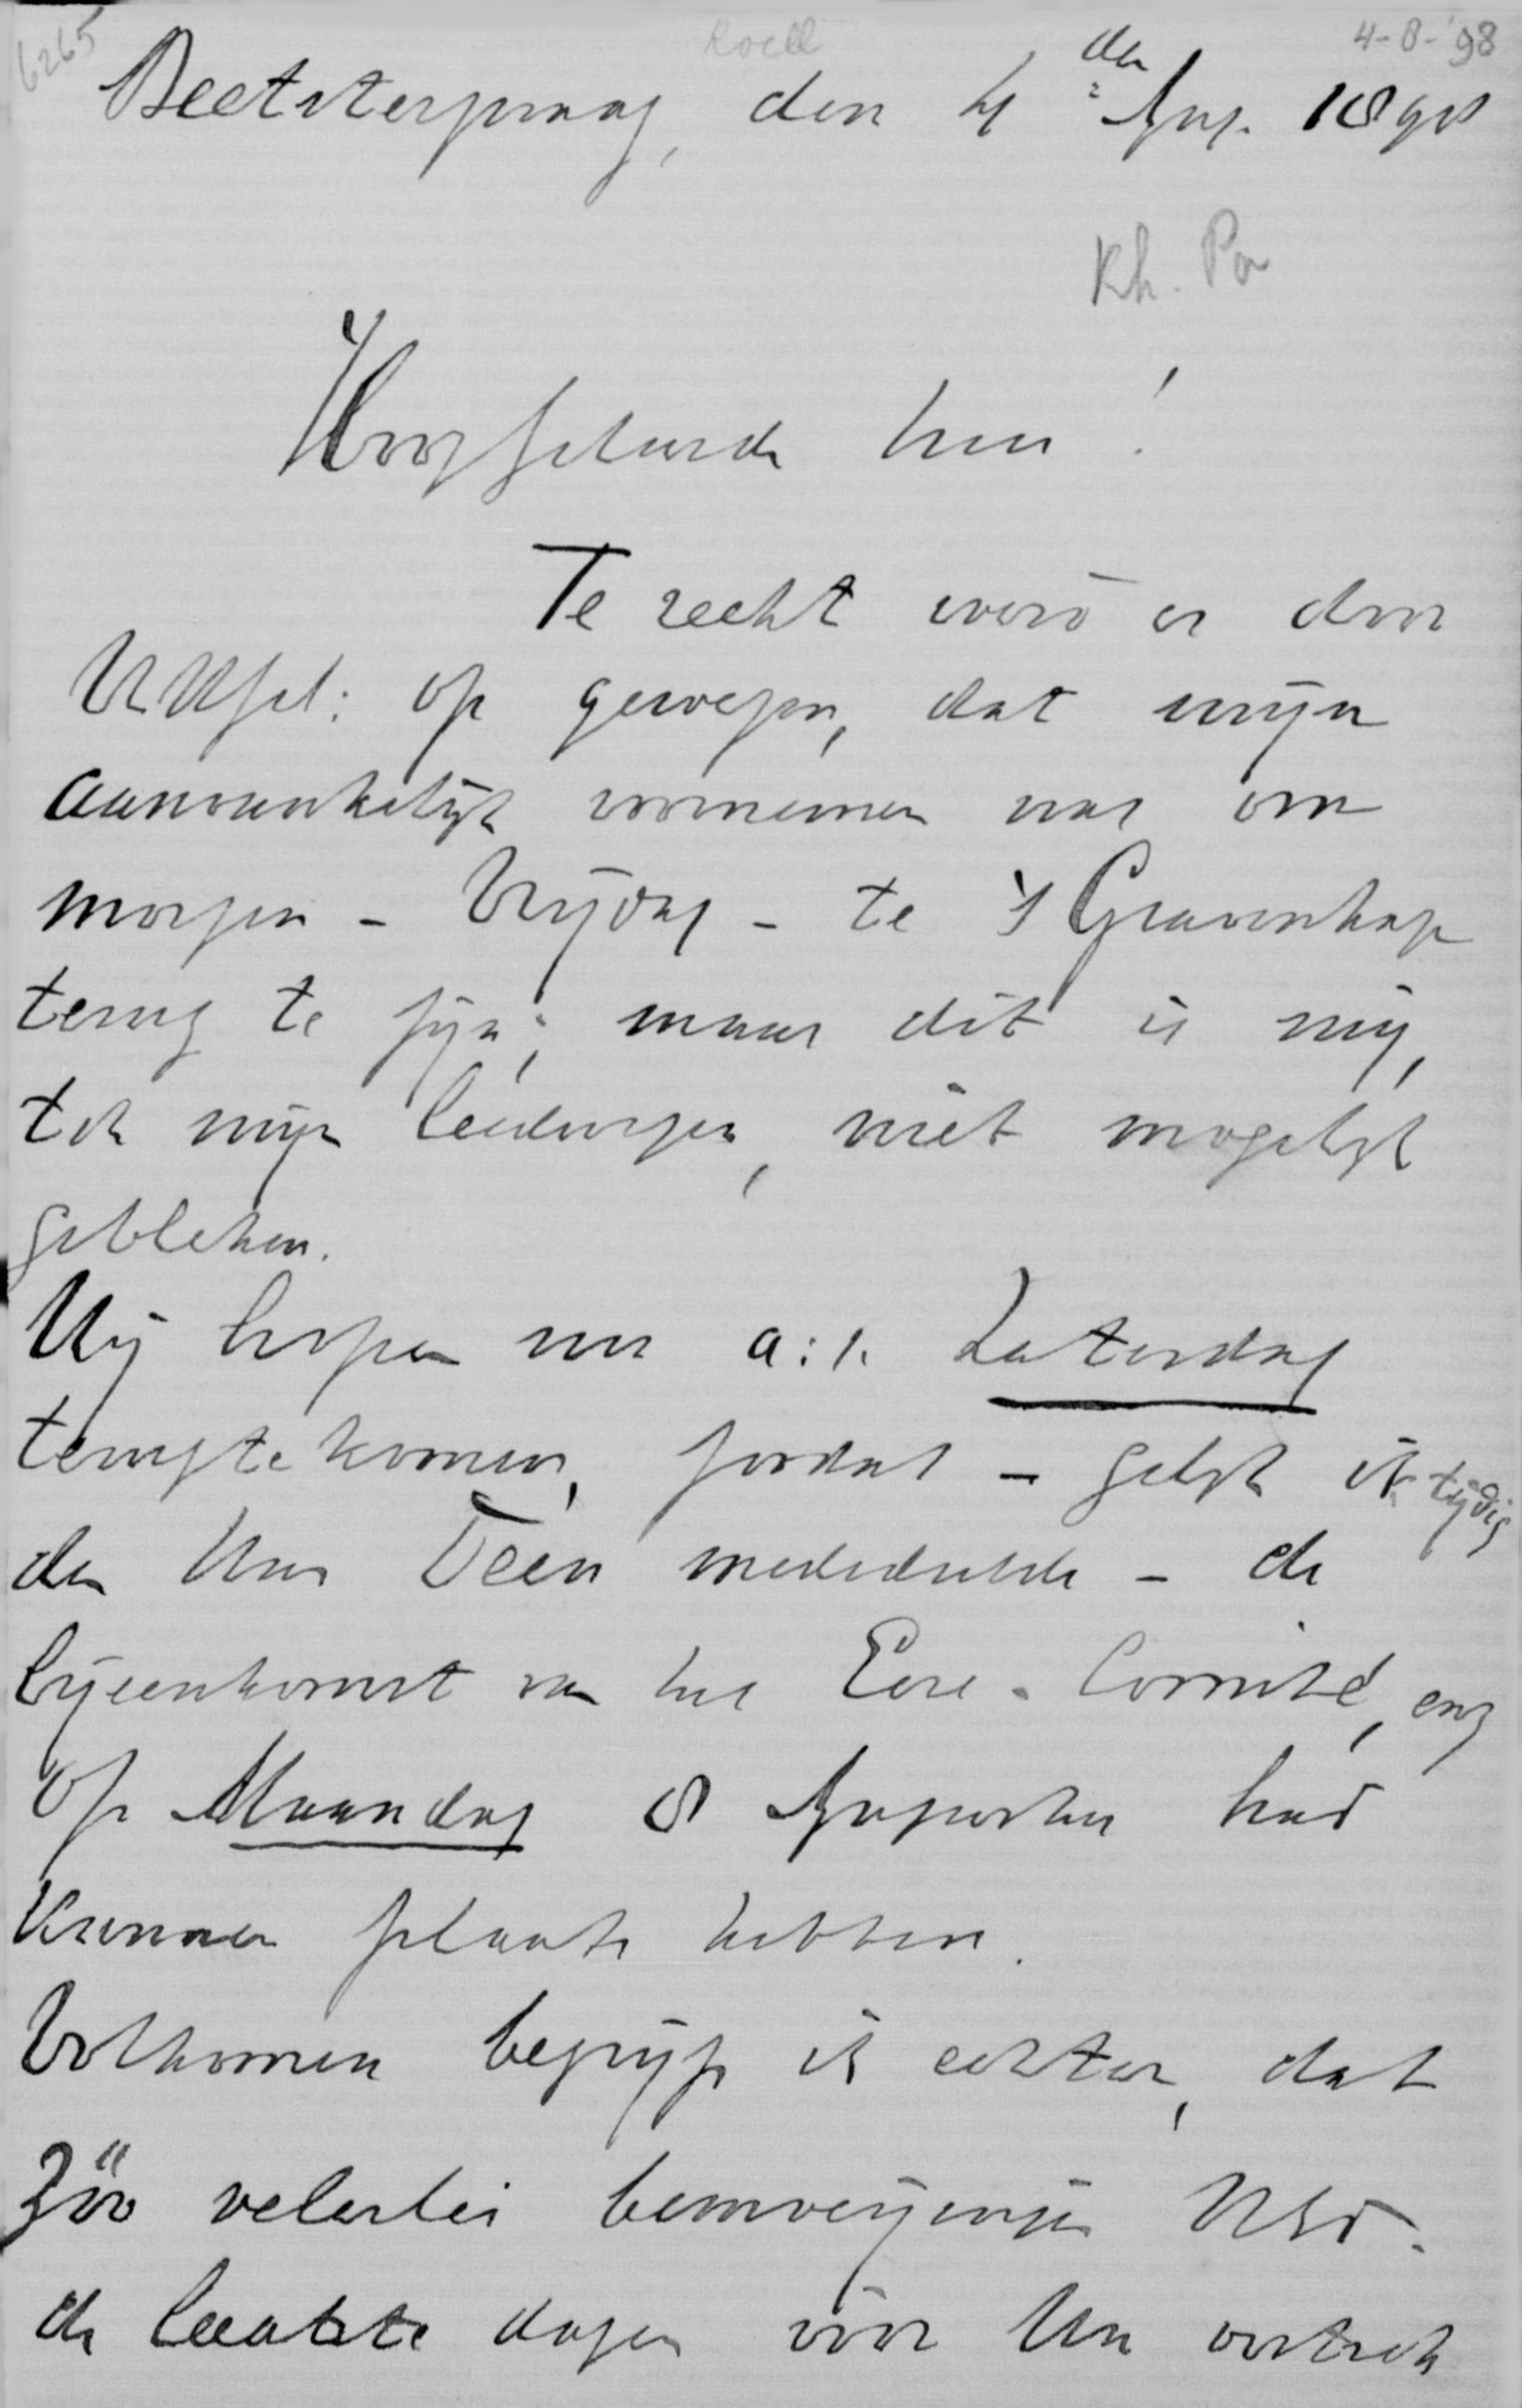 6265 Roëll 4-8-'98
Beetsterzwaag, den 4den Aug. 1898
Kh. Po
Hooggeleerde Heer!
Te recht werd er door
UHgel: op gewezen, dat mijn
aanvankelijk voornemen was om
morgen - Vrijdag - te 's Gravenhage
terug te zijn; maar dit is mij,
tot mijn leedwezen, niet mogelijk
gebleken.
Wij hopen nu a:s. Zaterdag
terugtekomen, zoodat - gelijk ik tijdig
den Heer Veen mededeelde - de
bijeenkomst van het Eere-Comité, enz
op Maandag 8 Augustus had
kunnen plaats hebben.
Volkomen begrijp ik echter, dat
zóó velerlei bemoeijingen
de laatste dagen vóór Uw vertrek